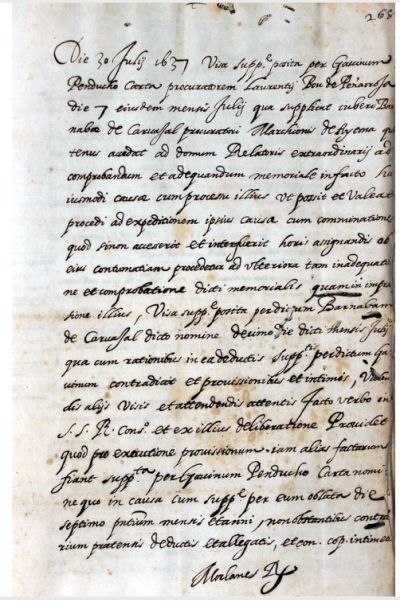 268
Die 30 Julij 1637 Visa supp.e posita per Gavinum
Penducho Carta procuratorem Laurentij Bou de Penarroja
die 7 eiusdem mensis Julij qua supplicat iuberi Bar
nabæ de Carvasal procuratori Marchionis de Ayerna qua
tenus accedat ad domum Relatoris extraordinarij ad
comprobandum et adequandum memoriale in facto hu
iusmodi causæ cum processu illius Vt possit et Valeat
procedi ad expeditionem ipsius causæ cum comminatione
quod si non accesserit et interfuerit horis assignandis ob
eius contumatiam procedetur ad Vlteriora tam in adequatio
ne et comprobatione dicti memorialis quam in impres
sione illius, Visa supp.e posita per dictum Barnabam
de Carvasal dicto nomine decimo die dicti mensis Julij
qua cum rationibus in ea deductis supp.ni per dictum Ga
vinum contradicit et provisionibus et intimis, Viden
dis alijs Visis et attendendis attentis facto verbo in
S. S. R. Cons.o et ex illius deliberatione Providet
quod pro executione provissionum iam alias factarum
fiant supp.ta per Gavinum Penducho Carta nomi
ne quo in causa cum supp.e per eum oblata die
septimo pntium mensis et anni, non obstantibus contra
rium prætensis deductis et allegatis, et con. cop. intimetur
Morlanes